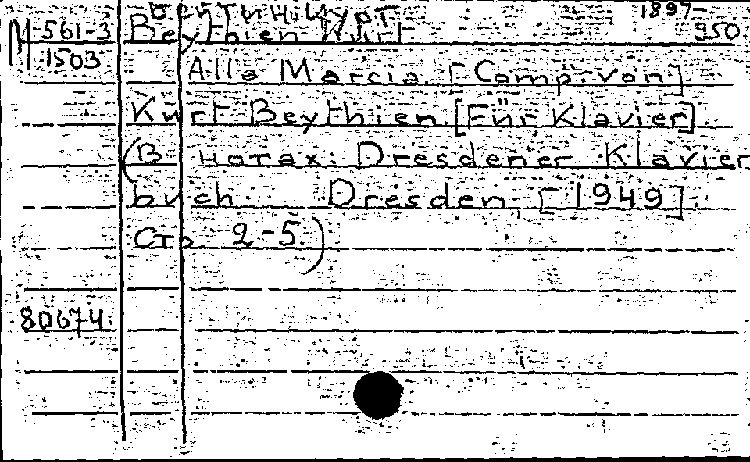 Бейтин, Курт 1897-
М 561-3 Beythien Kurt 950
1503 Alla Marcia [Comp. von]
Kurt Beythien [Für Klavier]
(В нотах: Dresdener Klavier
buch. Dresden, [1949]
Стр. 2-5)
80674